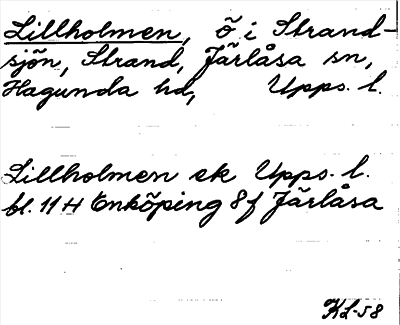 Lillholmen, ö i Strand-
sjön, Strand, Järlåsa sn,
Hagunda hd, Upps. l.
Lillholmen ek Upps. l.
bl. 11 H Enköping 8f Järlåsa
KL-58